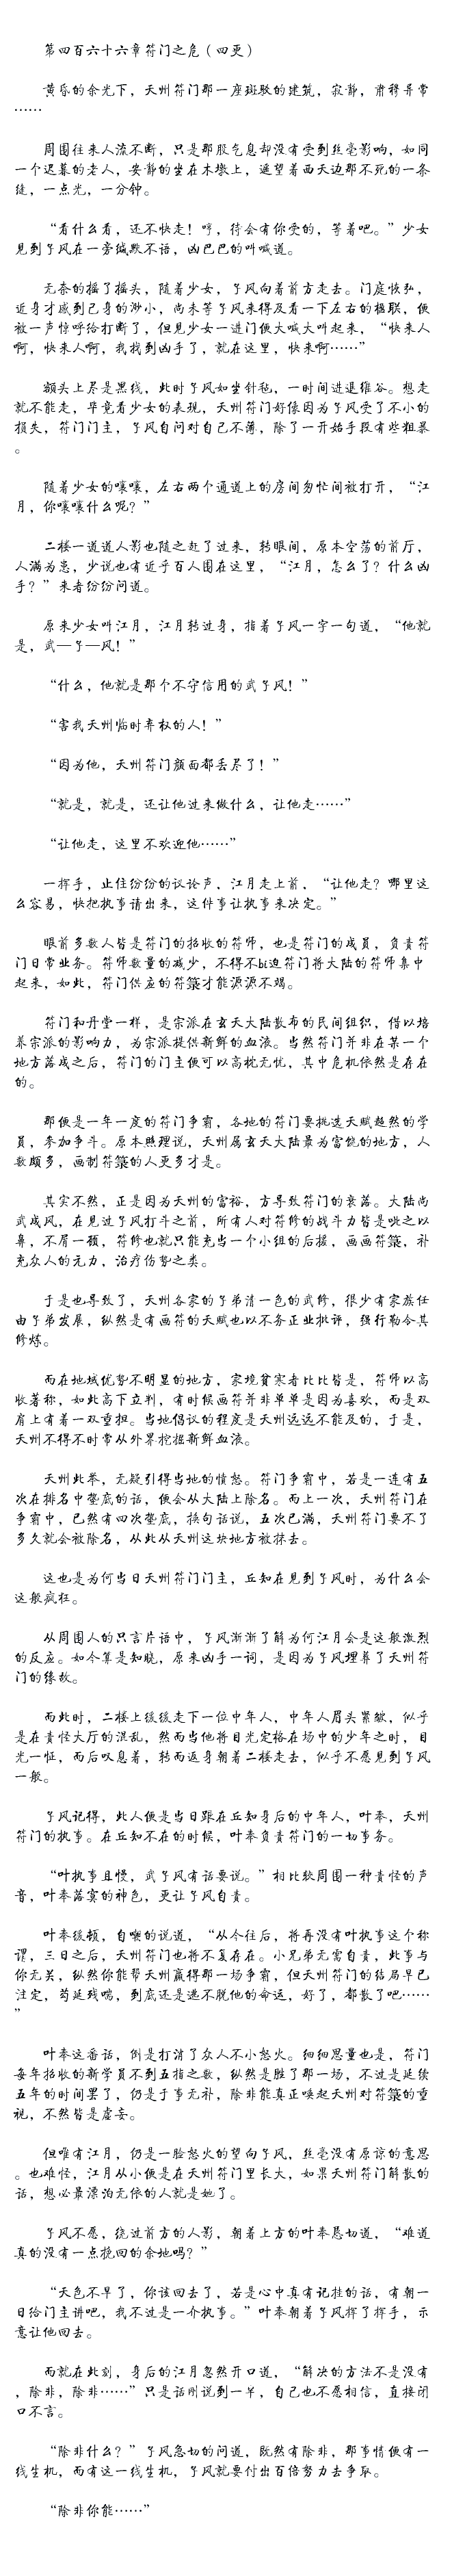 第四百六十六章符门之危（四更）
黄昏的余光下，天州符门那一座斑驳的建筑，寂静，肃穆异常
……
周围往来人流不断，只是那股气息却没有受到丝毫影响，如同
一个迟暮的老人，安静的坐在木墩上，遥望着西天边那不死的一条
缝，一点光，一分钟。
“看什么看，还不快走！哼，待会有你受的，等着吧。”少女
见到予风在一旁缄默不语，凶巴巴的叫喊道。
无奈的摇了摇头，随着少女，予风向着前方走去。门庭恢弘，
近身才感到己身的渺小，尚未等予风来得及看一下左右的楹联，便
被一声惊呼给打断了，但见少女一进门便大喊大叫起来，“快来人
啊，快来人啊，我找到凶手了，就在这里，快来啊……”
额头上尽是黑线，此时予风如坐针毡，一时间进退维谷。想走
就不能走，毕竟看少女的表现，天州符门好像因为予风受了不小的
损失，符门门主，予风自问对自己不薄，除了一开始手段有些粗暴
。
随着少女的嚷嚷，左右两个通道上的房间匆忙间被打开，“江
月，你嚷嚷什么呢？”
二楼一道道人影也随之赶了过来，转眼间，原本空荡的前厅，
人满为患，少说也有近乎百人围在这里，“江月，怎么了？什么凶
手？”来者纷纷问道。
原来少女叫江月，江月转过身，指着予风一字一句道，“他就
是，武—予—风！”
“什么，他就是那个不守信用的武予风！”
“害我天州临时弃权的人！”
“因为他，天州符门颜面都丢尽了！”
“就是，就是，还让他过来做什么，让他走……”
“让他走，这里不欢迎他……”
一挥手，止住纷纷的议论声，江月走上前，“让他走？哪里这
么容易，快把执事请出来，这件事让执事来决定。”
眼前多数人皆是符门的招收的符师，也是符门的成员，负责符
门日常业务。符师数量的减少，不得不bī迫符门将大陆的符师集中
起来，如此，符门供应的符箓才能源源不竭。
符门和丹堂一样，是宗派在玄天大陆散布的民间组织，借以培
养宗派的影响力，为宗派提供新鲜的血液。当然符门并非在某一个
地方落成之后，符门的门主便可以高枕无忧，其中危机依然是存在
的。
那便是一年一度的符门争霸，各地的符门要挑选天赋超然的学
员，参加争斗。原本照理说，天州属玄天大陆最为富饶的地方，人
数颇多，画制符箓的人更多才是。
其实不然，正是因为天州的富裕，方导致符门的衰落。大陆尚
武成风，在见过予风打斗之前，所有人对符修的战斗力皆是嗤之以
鼻，不屑一顾，符修也就只能充当一个小组的后援，画画符箓，补
充众人的元力，治疗伤势之类。
于是也导致了，天州各家的子弟清一色的武修，很少有家族任
由子弟发展，纵然是有画符的天赋也以不务正业批评，强行勒令其
修炼。
而在地域优势不明显的地方，家境贫寒者比比皆是，符师以高
收著称，如此高下立判，有时候画符并非单单是因为喜欢，而是双
肩上有着一双重担。当地倡议的程度是天州远远不能及的，于是，
天州不得不时常从外界挖掘新鲜血液。
天州此举，无疑引得当地的愤怒。符门争霸中，若是一连有五
次在排名中垫底的话，便会从大陆上除名。而上一次，天州符门在
争霸中，已然有四次垫底，换句话说，五次已满，天州符门要不了
多久就会被除名，从此从天州这块地方被抹去。
这也是为何当日天州符门门主，丘知在见到予风时，为什么会
这般疯狂。
从周围人的只言片语中，予风渐渐了解为何江月会是这般激烈
的反应。如今算是知晓，原来凶手一词，是因为予风埋葬了天州符
门的缘故。
而此时，二楼上缓缓走下一位中年人，中年人眉头紧皱，似乎
是在责怪大厅的混乱，然而当他将目光定格在场中的少年之时，目
光一怔，而后叹息着，转而返身朝着二楼走去，似乎不愿见到予风
一般。
予风记得，此人便是当日跟在丘知身后的中年人，叶奉，天州
符门的执事。在丘知不在的时候，叶奉负责符门的一切事务。
“叶执事且慢，武予风有话要说。”相比较周围一种责怪的声
音，叶奉落寞的神色，更让予风自责。
叶奉缓顿，自嘲的说道，“从今往后，将再没有叶执事这个称
谓，三日之后，天州符门也将不复存在。小兄弟无需自责，此事与
你无关，纵然你能帮天州赢得那一场争霸，但天州符门的结局早已
注定，苟延残喘，到底还是逃不脱他的命运，好了，都散了吧……
”
叶奉这番话，倒是打消了众人不小怒火。细细思量也是，符门
每年招收的新学员不到五指之数，纵然是胜了那一场，不过是延续
五年的时间罢了，仍是于事无补，除非能真正唤起天州对符箓的重
视，不然皆是虚妄。
但唯有江月，仍是一脸怒火的望向予风，丝毫没有原谅的意思
。也难怪，江月从小便是在天州符门里长大，如果天州符门解散的
话，想必最漂泊无依的人就是她了。
予风不愿，绕过前方的人影，朝着上方的叶奉恳切道，“难道
真的没有一点挽回的余地吗？”
“天色不早了，你该回去了，若是心中真有记挂的话，有朝一
日给门主讲吧，我不过是一介执事。”叶奉朝着予风挥了挥手，示
意让他回去。
而就在此刻，身后的江月忽然开口道，“解决的方法不是没有
，除非，除非……”只是话刚说到一半，自己也不愿相信，直接闭
口不言。
“除非什么？”予风急切的问道，既然有除非，那事情便有一
线生机，而有这一线生机，予风就要付出百倍努力去争取。
“除非你能……”